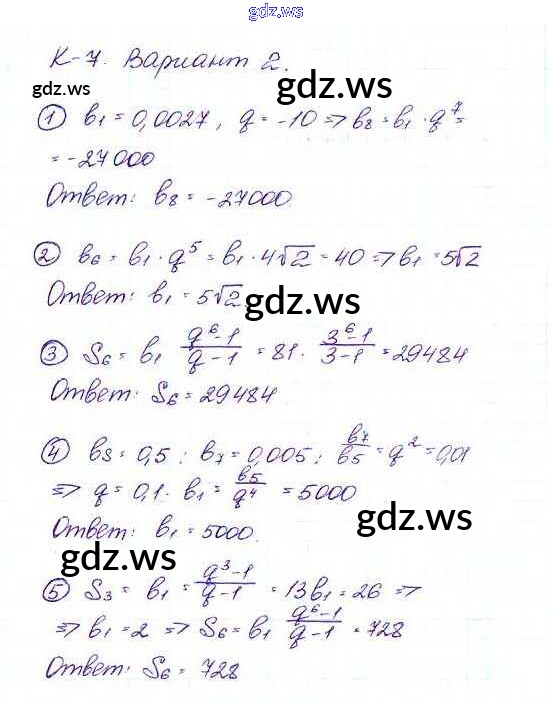 gdz.ws
К-7. Вариант 2.
gdz.ws
gdz.ws
① b₁ = 0,0027, q = -10 => b₈ = b₁ · q⁷ =
= -27000
Ответ: b₈ = -27000.
② b₆ = b₁ · q⁵ = b₁ · 4√2 = 40 => b₁ = 5√2
Ответ: b₁ = 5√2.
gdz.ws
③ S₆ = b₁ (q⁶-1)/(q-1) = 81 · (3⁶-1)/(3-1) = 29484
Ответ: S₆ = 29484
④ b₅ = 0,5; b₇ = 0,005; b₇/b₅ = q² = 0,01
=> q = 0,1. b₁ = b₅/q⁴ = 5000
Ответ: b₁ = 5000.
gdz.ws
gdz.ws
⑤ S₃ = b₁ = (q³-1)/(q-1) = 13b₁ = 26 =>
=> b₁ = 2 => S₆ = b₁ (q⁶-1)/(q-1) = 728
Ответ: S₆ = 728